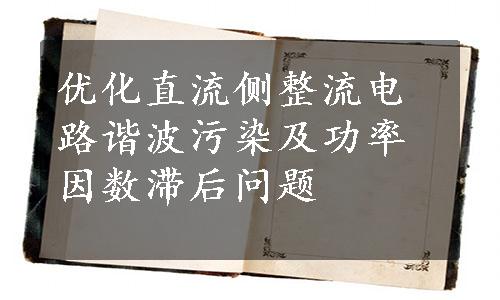 优化直流侧整流电
路谐波污染及功率
因数滞后问题